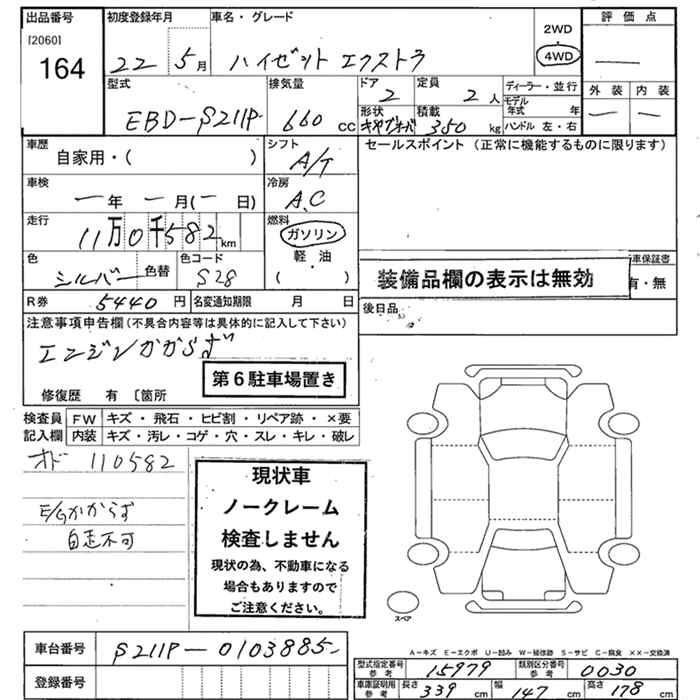 出品番号 初度登録年月 車名・グレード 評価点
[2060] 2WD
164 22 5月 ハイゼット エクストラ 4WD —
型式 排気量 ドア 定員 ディーラー・並行 外装 内装
EBD-S211P 660 cc 2 2人 モデル年式 年 — —
形状 積載 ハンドル 左・右
キヤブオーバ 350 kg
車歴 シフト セールスポイント (正常に機能するものに限ります)
自家用・( ) A/T
車検 冷房
—年 —月(—日) A.C
走行 燃料
11万0千582km ガソリン
色 色コード 軽油
シルバー 色替 S28 ・
( )
装備品欄の表示は無効 車保証書
有・無
R券 5440円 名変通知期限 月 日 後日品
注意事項申告欄(不具合内容等は具体的に記入して下さい)
エンジンかからず
第6駐車場置き
修復歴 有 〔箇所
検査員 FW キズ・飛石・ヒビ割・リペア跡・×要
記入欄 内装 キズ・汚レ・コゲ・穴・スレ・キレ・破レ
オド 110582
E/Gかからず
自走不可
現状車
ノークレーム
検査しません
現状の為、不動車になる
場合もありますので
ご注意ください。
スペア
A-キズ E-エクボ U-凹み W-補修跡 S-サビ C-腐食 XX-交換済
車台番号 S211P-0103885
登録番号
型式指定番号参考 15979 類別区分番号参考 0030
車庫証明用参考 長さ 339cm 幅 147cm 高さ 178cm